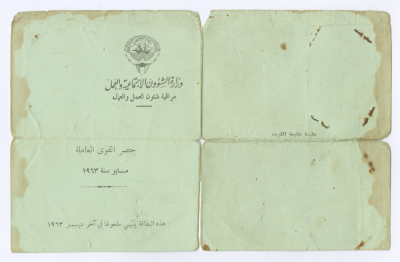 وزارة الشؤون الاجتماعية والعمل
مراقبة شئون العمل والعمال
حصر القوى العاملة
مسايو سنة ١٩٦٣
هذه البطاقة ينتهي مفعولها في آخر ديسمبر ١٩٦٣
مطبعة حكومة الكويت